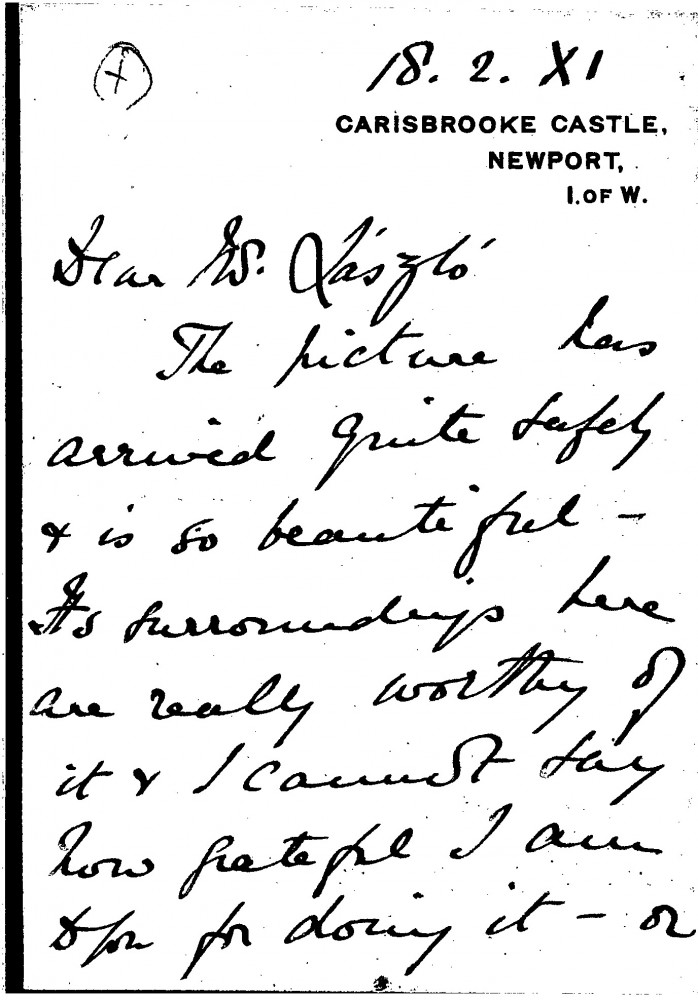 18. 2. XI
CARISBROOKE CASTLE,
NEWPORT,
I. OF W.
Dear Mr. László
The picture has
arrived quite safely
& is so beautiful –
Its surroundings here
are really worthy of
it & I cannot say
how grateful I am
to you for doing it – or